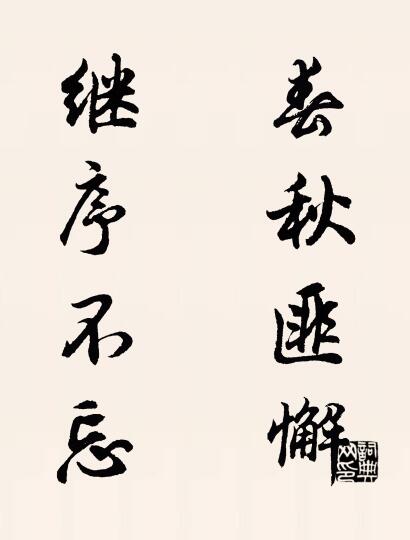 春秋匪懈
继序不忘
詞典網印